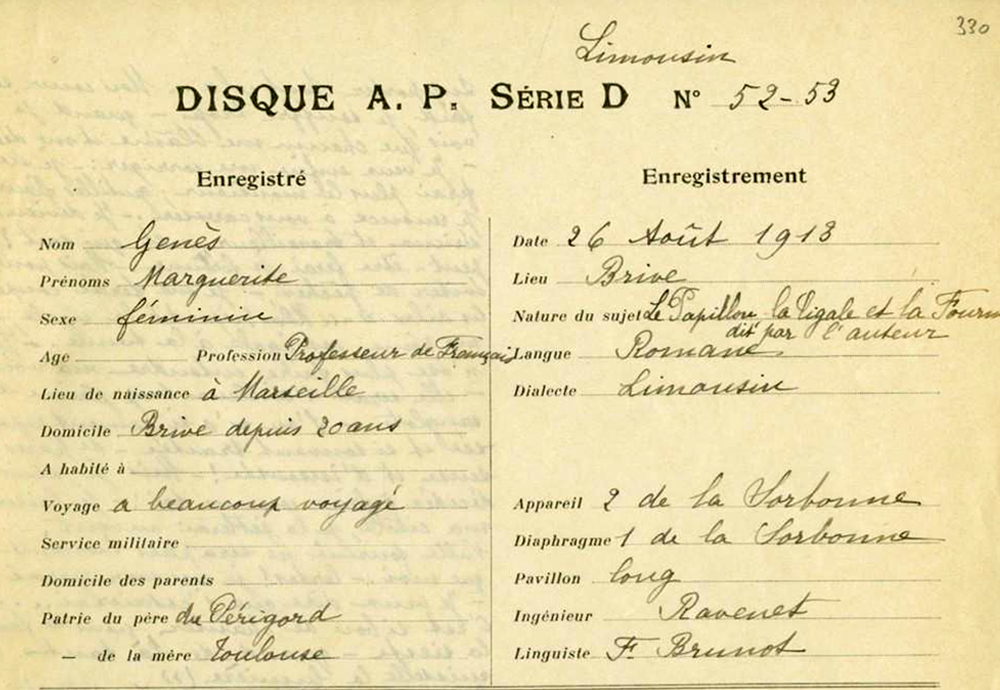 330
Limousin
DISQUE A. P. SÉRIE D N° 52-53
Enregistré
Nom Genès
Prénoms Marguerite
Sexe féminin
Age Profession Professeur de Français
Lieu de naissance à Marseille
Domicile Brive depuis 20 ans
A habité à
Voyage a beaucoup voyagé
Service militaire
Domicile des parents
Patrie du père du Périgord
— de la mère Toulouse
Enregistrement
Date 26 Août 1913
Lieu Brive
Nature du sujet Le Papillon la Cigale et la Fourm
dit par l'auteur
Langue Romane
Dialecte Limousin
Appareil 2 de la Sorbonne
Diaphragme 1 de la Sorbonne
Pavillon long
Ingénieur Ravenet
Linguiste F. Brunot